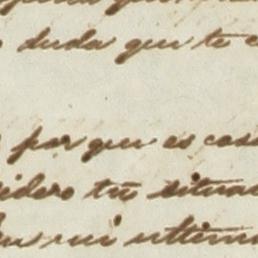 duda que te
por que es cosa
sidero tu situac
en mi ultima